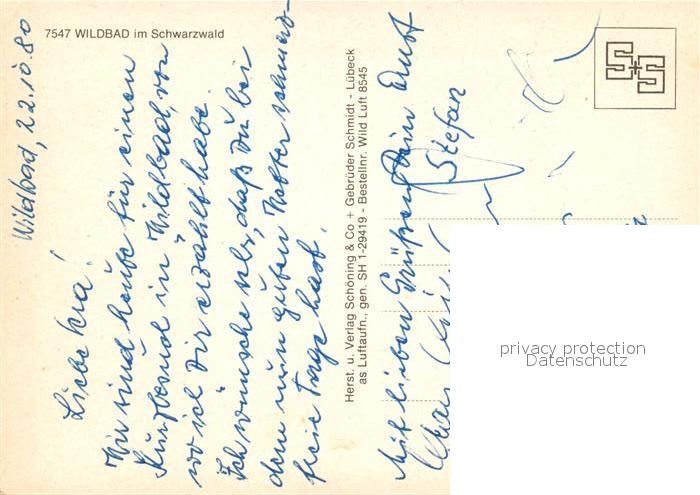 7547 WILDBAD im Schwarzwald
Wildbad, 22.10.80
Liebe
Wir sind heute für einen
Kurzbesuch in Wildbad, von
wo ich Dir erzählt habe.
Ich wünsche sehr, daß Du bei
dem nun guten Wetter schmerz-
freie Tage hast.
Mit lieben Grüßen Dein Ernst
Stefan
Herst. u. Verlag Schöning & Co + Gebrüder Schmidt - Lübeck
as Luftaufn., gen. SH 1-29419 - Bestellnr. Wild Luft 8545
S+S
privacy protection
Datenschutz